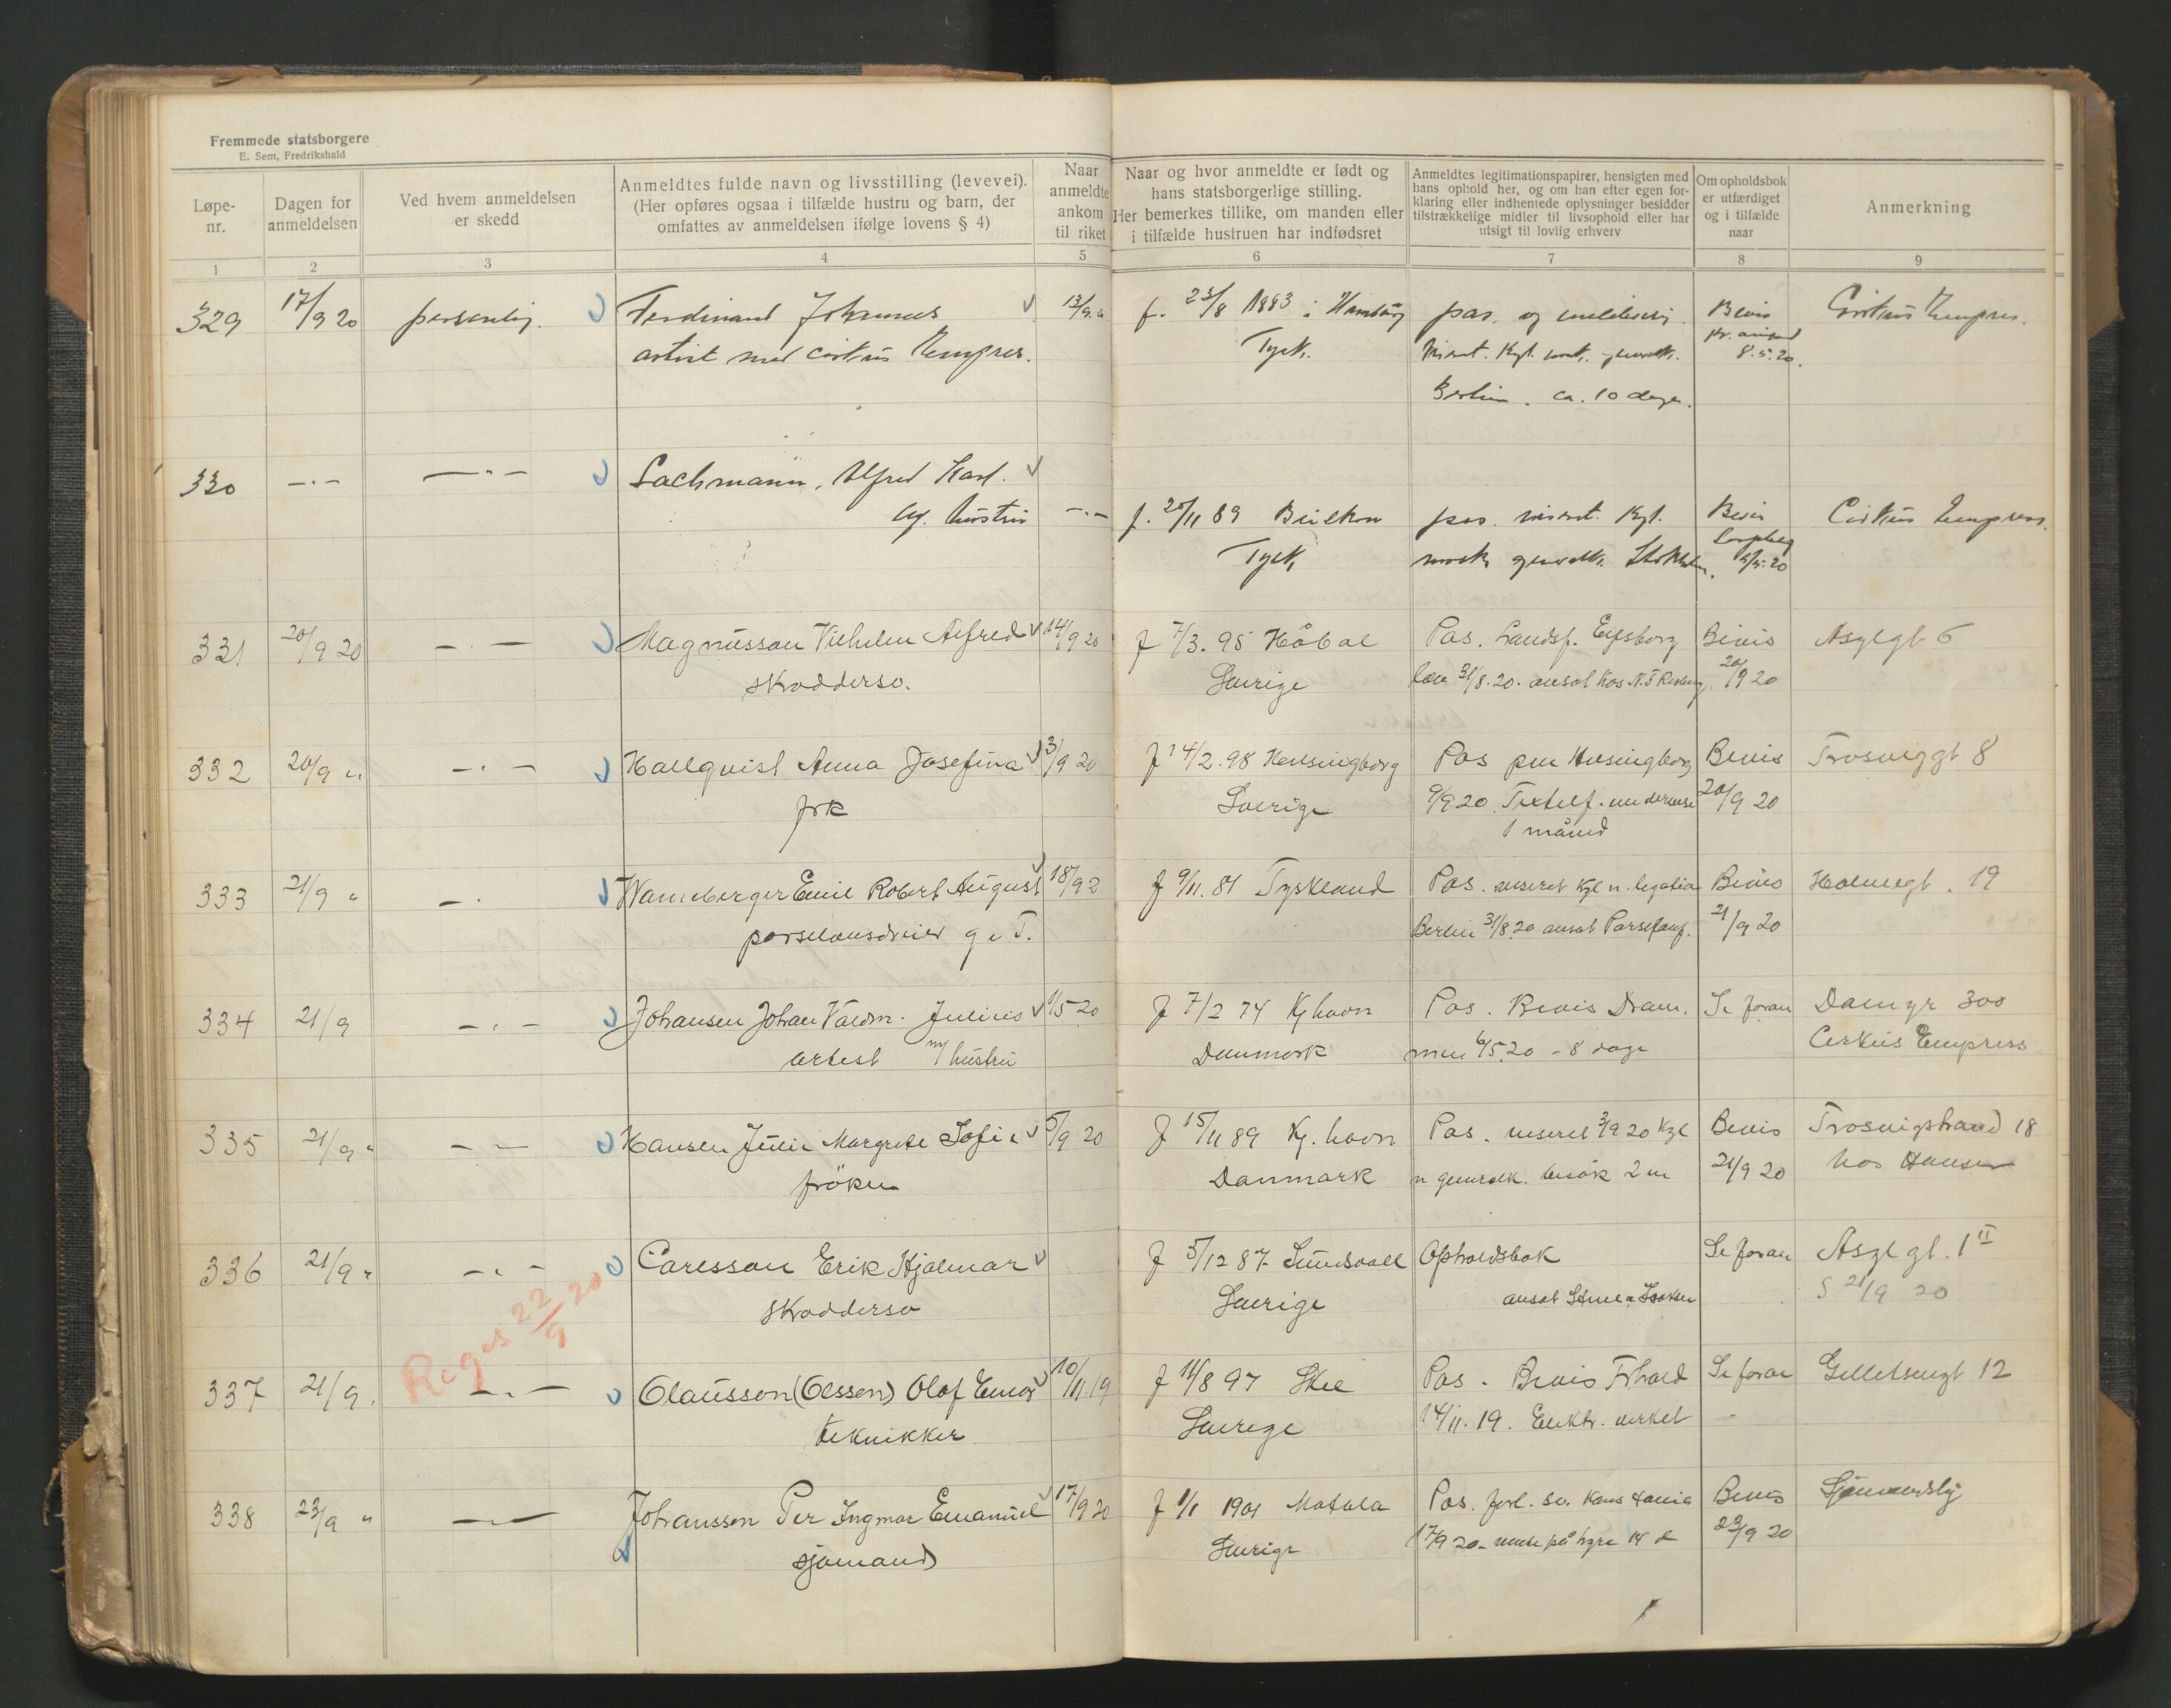 Fremmede statsborgere
E. Sem, Fredrikshald
Løpe-
nr.
Dagen for
anmeldelsen
Ved hvem anmeldelsen
er skedd
Anmeldtes fulde navn og livsstilling (levevei).
(Her opføres ogsaa i tilfælde hustru og barn, der
omfattes av anmeldelsen ifølge lovens § 4)
Naar
anmeldte
ankom
til riket
Naar og hvor anmeldte er født og
hans statsborgerlige stilling.
Her bemerkes tillike, om manden eller
i tilfælde hustruen har indfødsret
Anmeldtes legitimationspapirer, hensigten med
hans ophold her, og om han efter egen for-
klaring eller indhentede oplysninger besidder
tilstrækkelige midler til livsophold eller har
utsigt til lovlig erhverv
Om opholdsbok
er utfærdiget
og i tilfælde
naar
Anmerkning
1 2 3 4 5 6 7 8 9
329 17/9 20 personlig. Ferdinand Johannes 13/9 " f. 23/8 1883 i Hamburg pas. og Bevis Cirkus Empress.
artist med cirkus Empress. Tysk. 8.5.20.
Berlin. ca. 10 dage.
330 -"- -"- Lachmann, Alfred Karl.
og hustru -"- f. 25/11 89 pas. viseret. Kgl. Bevis Cirkus Empress.
Tysk, norsk generalk. Stokholm. 20
331 20/9 20 -"- Magnusson Vilhelm Alfred 14/9 20 f 7/3. 95 Håbol Pas. Landsf. Elfsborg Bevis Asylgt 6
skradders. Sverige 31/8.20. ansat hos N.F. 20/9 20
332 20/9 " -"- Hallqvist Anna Josefina 13/9 20 f 14/2.98 Helsingborg Pas Helsingborg Bevis Trosviggt 8
frk Sverige 9/9 20. 20/9 20
1 måned
333 21/9 " -"- Wanneberger Emil Robert August 18/9 2 f 9/11. 81 Tyskland Pas. viseret Kgl n. legation Bevis Holmegt. 19
porselænsdreier g. T. Berlin 31/8 20 ansat Porselfanf. 21/9 20
334 21/9 -"- Johansen Johan Valdm. Julius 1/5 20 f 7/2 74 Kjhavn Pas. Bevis Dram. Se foran Damyr 300
artist m/ hustru Danmark men 6/5.20 - 8 dage Cirkus Empress
335 21/9 " -"- Hansen Julie Margrete Sofie 5/9 20 f 15/11 89 Kj. havn Pas. viseret 3/9 20 Kgl Bevis Trosvigstrand 18
fröken Danmark n generalk. besök 2 m 21/9 20 hos Hansen
336 21/9 " -"- Carlsson Erik Hjalmar f 5/12 87 Sundsvall Opholdsbok Se foran Asylgt. 1 II
skradders Sverige ansat S 21/9 20
Reges 22/9 20
337 21/9. -"- Olausson (Olsson) Olof Einar 10/11.19 f 11/8 97 Skee Pas. Bevis Frhald Se foran 12
tekniker Sverige 14/11. 19. Elektr. verket -
338 23/9 " -"- Johansson Per Ingmar Emanuel 17/9 20 f 1/1 1901 Motala Pas. Bevis
sjömand Sverige 17/9 20 - på hyre 14 d 23/9 20